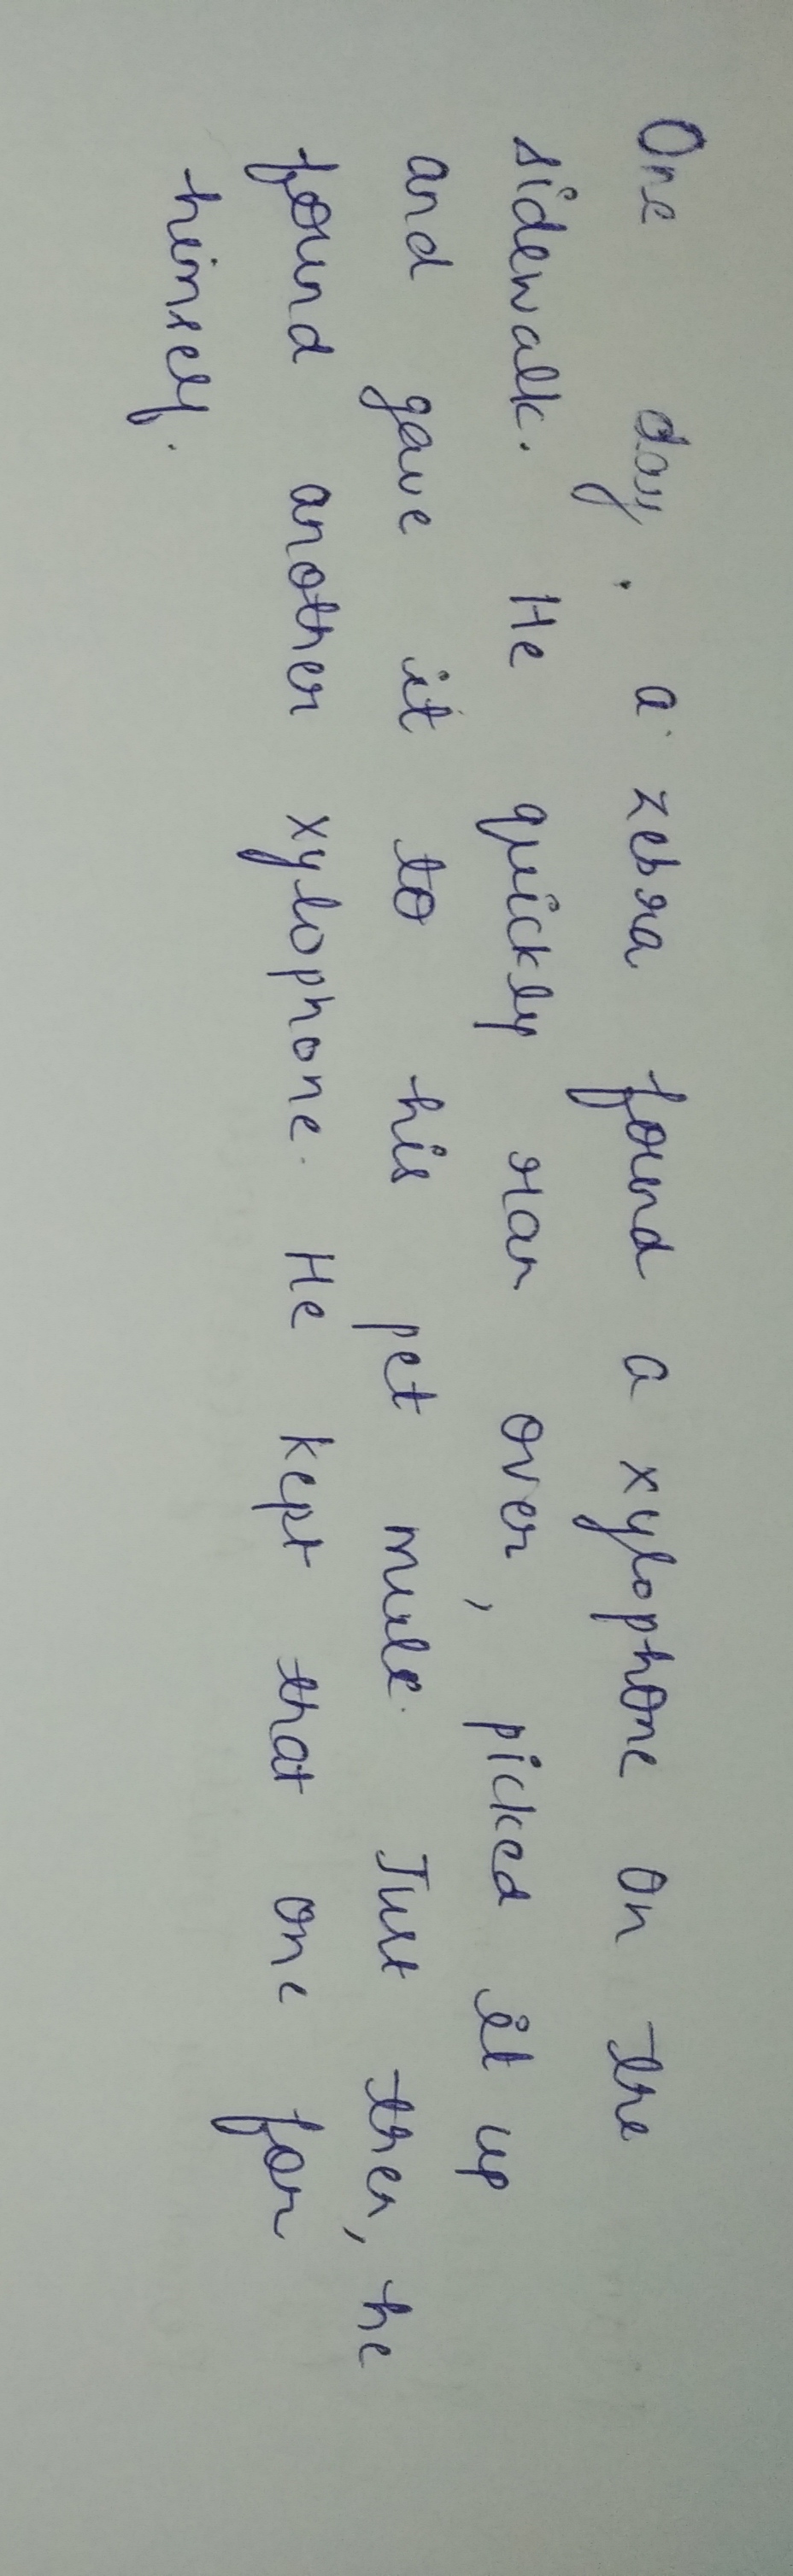 One day. a zebra found a xylophone on the
sidewalk. He quickly ran over, picked it up
and gave it to his pet mule. Just then, he
found another xylophone. He kept that one for
himself.